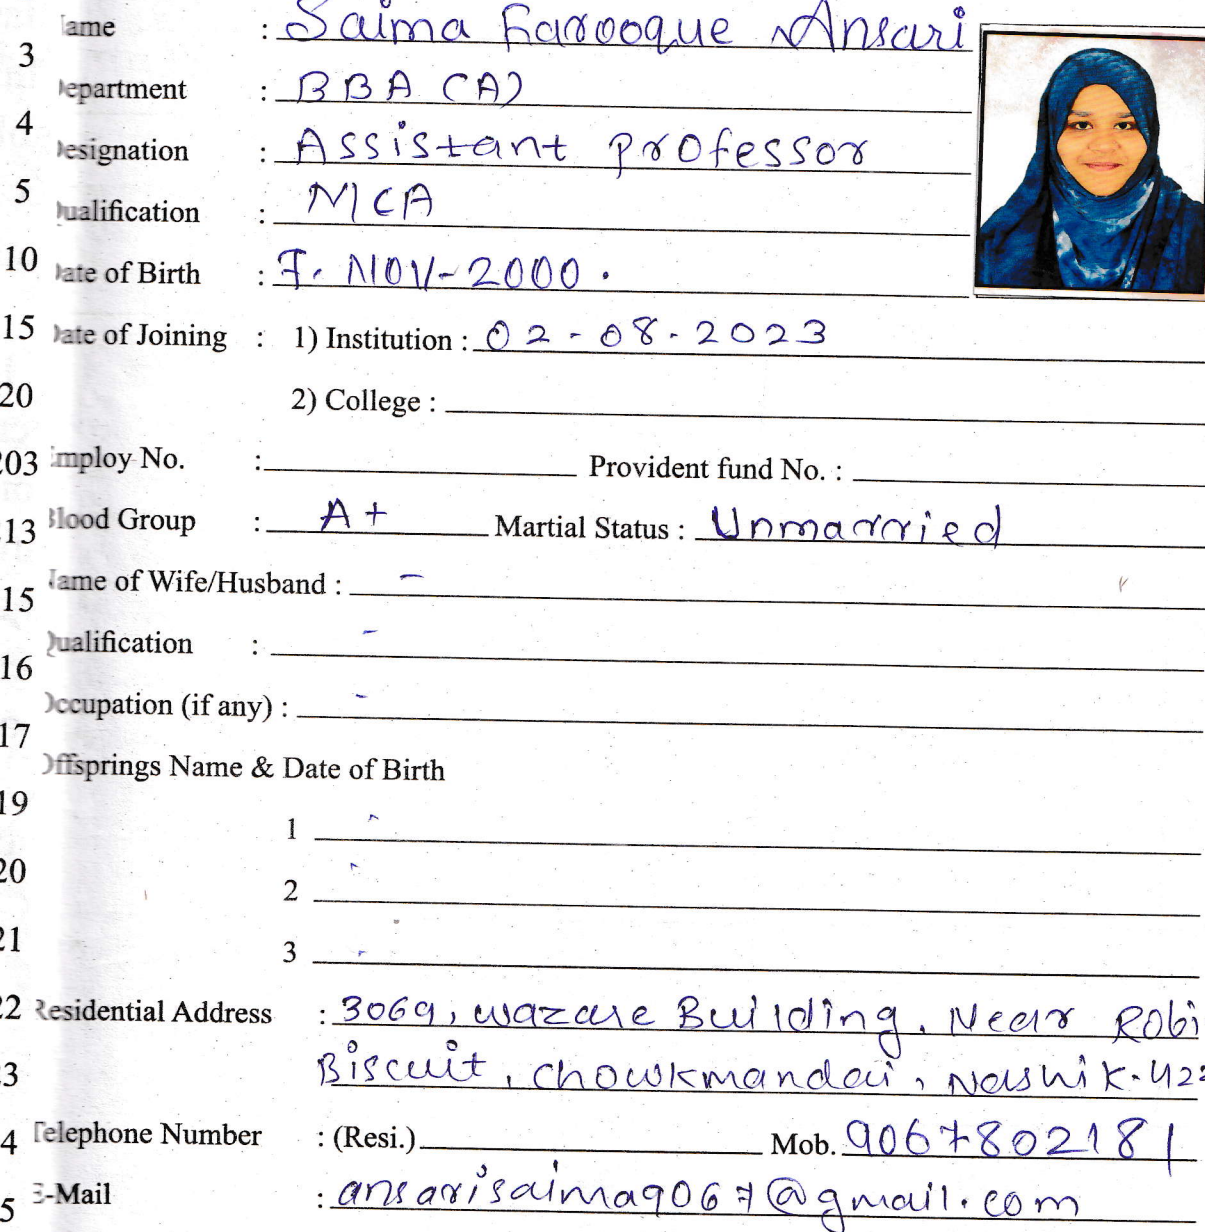 Name : Saima Farooque Ansari
3
Department : BBA (A)
4
Designation : Assistant Professor
5
Qualification : MCA
10
Date of Birth : 7. NOV-2000.
15
Date of Joining : 1) Institution : 02-08-2023
20
2) College :
203
Employ No. : Provident fund No. :
13
Blood Group : A+ Martial Status : Unmarried
15
Name of Wife/Husband : -
16
Qualification : -
17
Occupation (if any) : -
Offsprings Name & Date of Birth
19
1 -
20
2 -
21
3 -
22
Residential Address : 3069, wazare Building, Near Robi
23
Biscuit, chowkmandai, Nashik-422
4
Telephone Number : (Resi.) Mob. 9067802181
5
E-Mail : ansarisaima9067@gmail.com